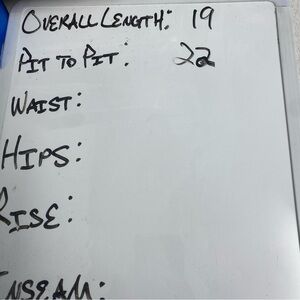 OVERALL LENGTH: 19
PIT TO PIT: 22
WAIST:
HIPS:
RISE:
INSEAM: